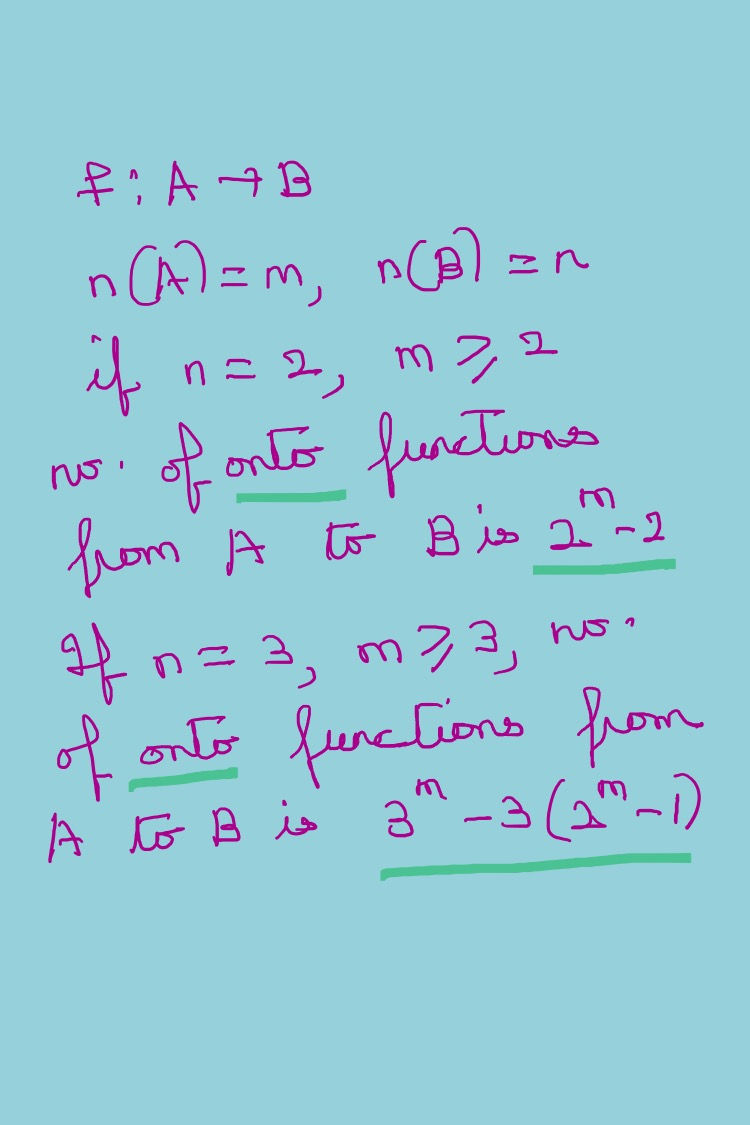 f : A → B
n(A) = m, n(B) = n
if n = 2, m ⩾ 2
no. of onto functions
from A to B is 2^m - 2
If n = 3, m ⩾ 3, no.
of onto functions from
A to B is 3^m - 3(2^m - 1)